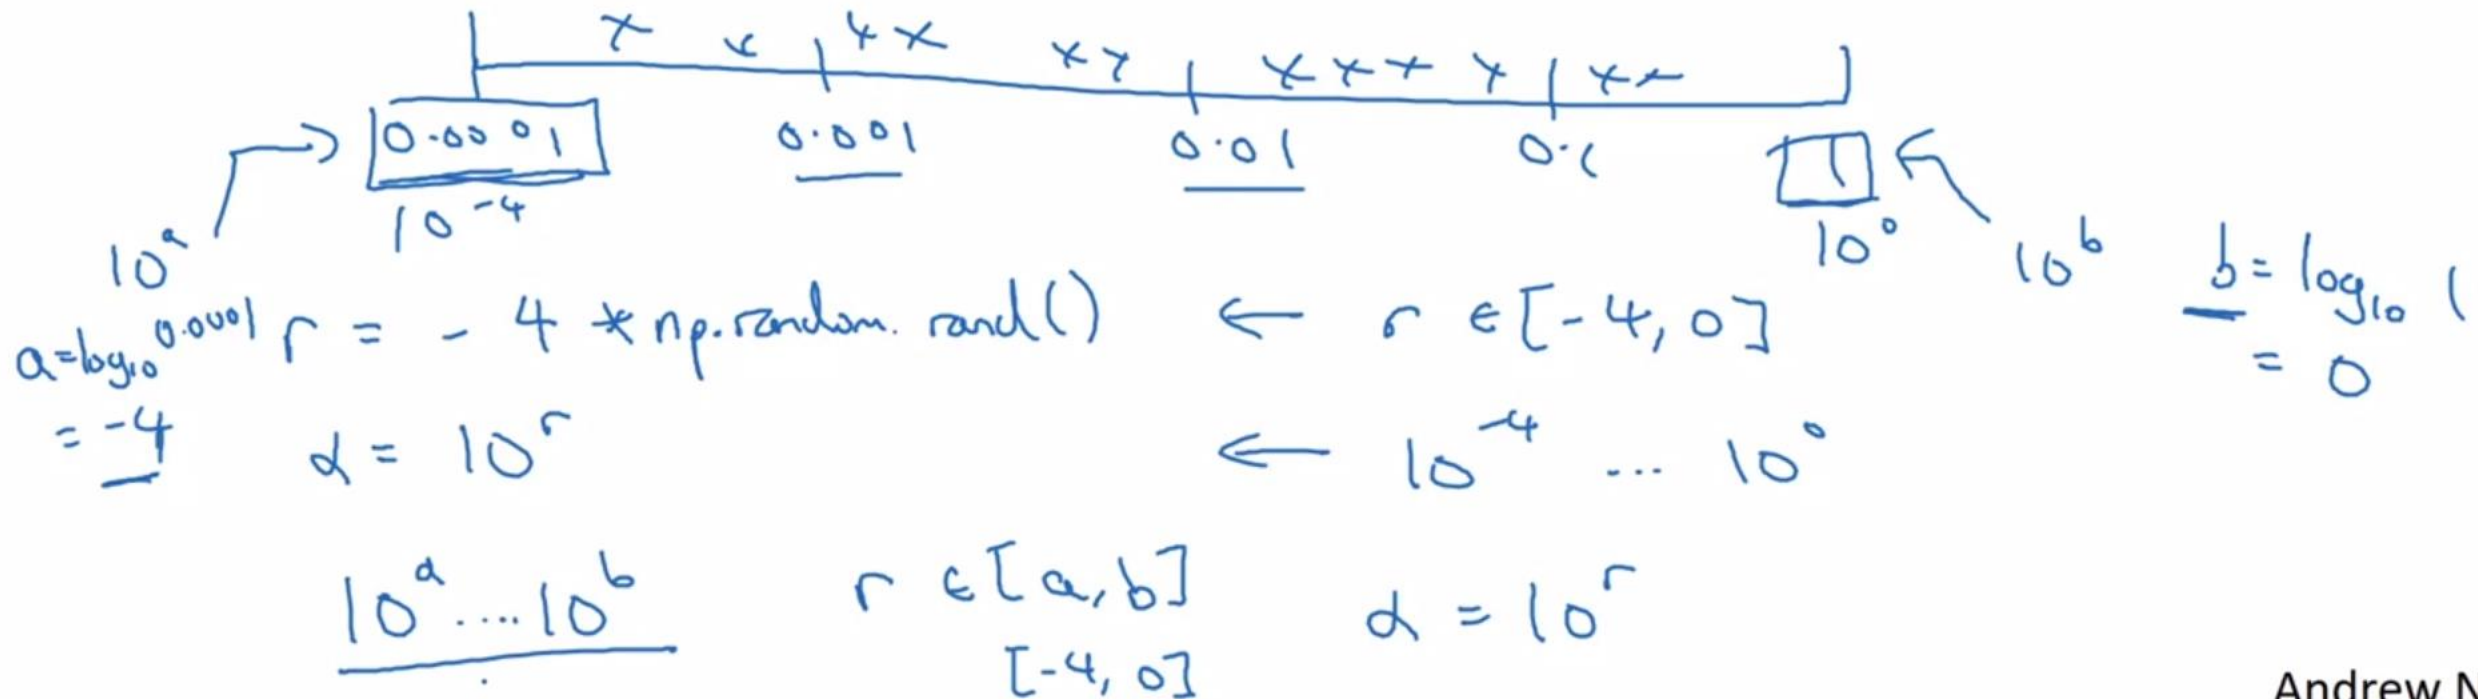 0.0001 0.001 0.01 0.1 1
10^a 10^-4 10^0 10^b b = log₁₀ 1
a = log₁₀ 0.0001 r = -4 * np.random.rand() ← r ∈ [-4, 0] = 0
= -4 α = 10^r ← 10^-4 ... 10^0
10^a ..... 10^b r ∈ [a, b] α = 10^r
[-4, 0]
Andrew N